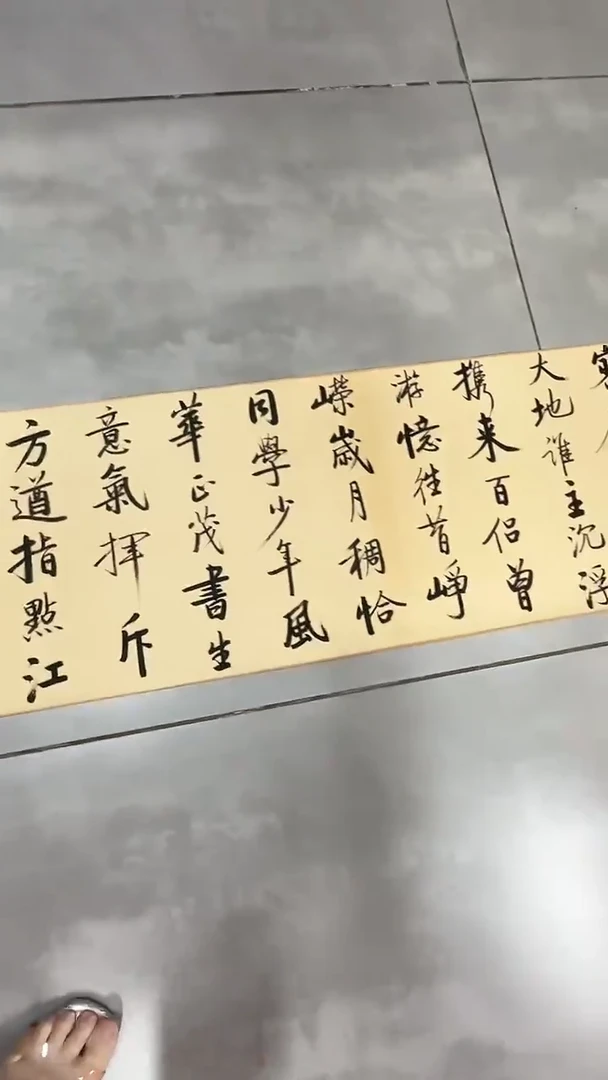 大地谁主沉浮
携来百侣曾
游憶往昔峥
嶸歲月稠恰
同學少年風
華正茂書生
意氣揮斥
方遒指點江